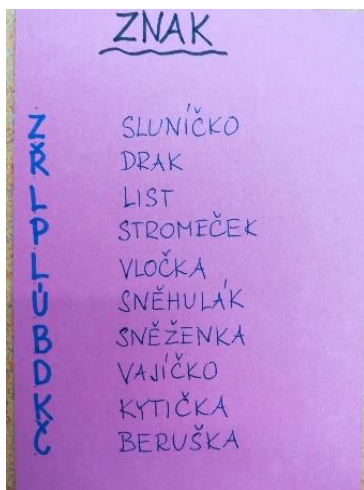 ZNAK
Z SLUNÍČKO
Ř DRAK
L LIST
P STROMEČEK
L VLOČKA
Ú SNĚHULÁK
B SNĚŽENKA
D VAJÍČKO
K KYTIČKA
Č BERUŠKA